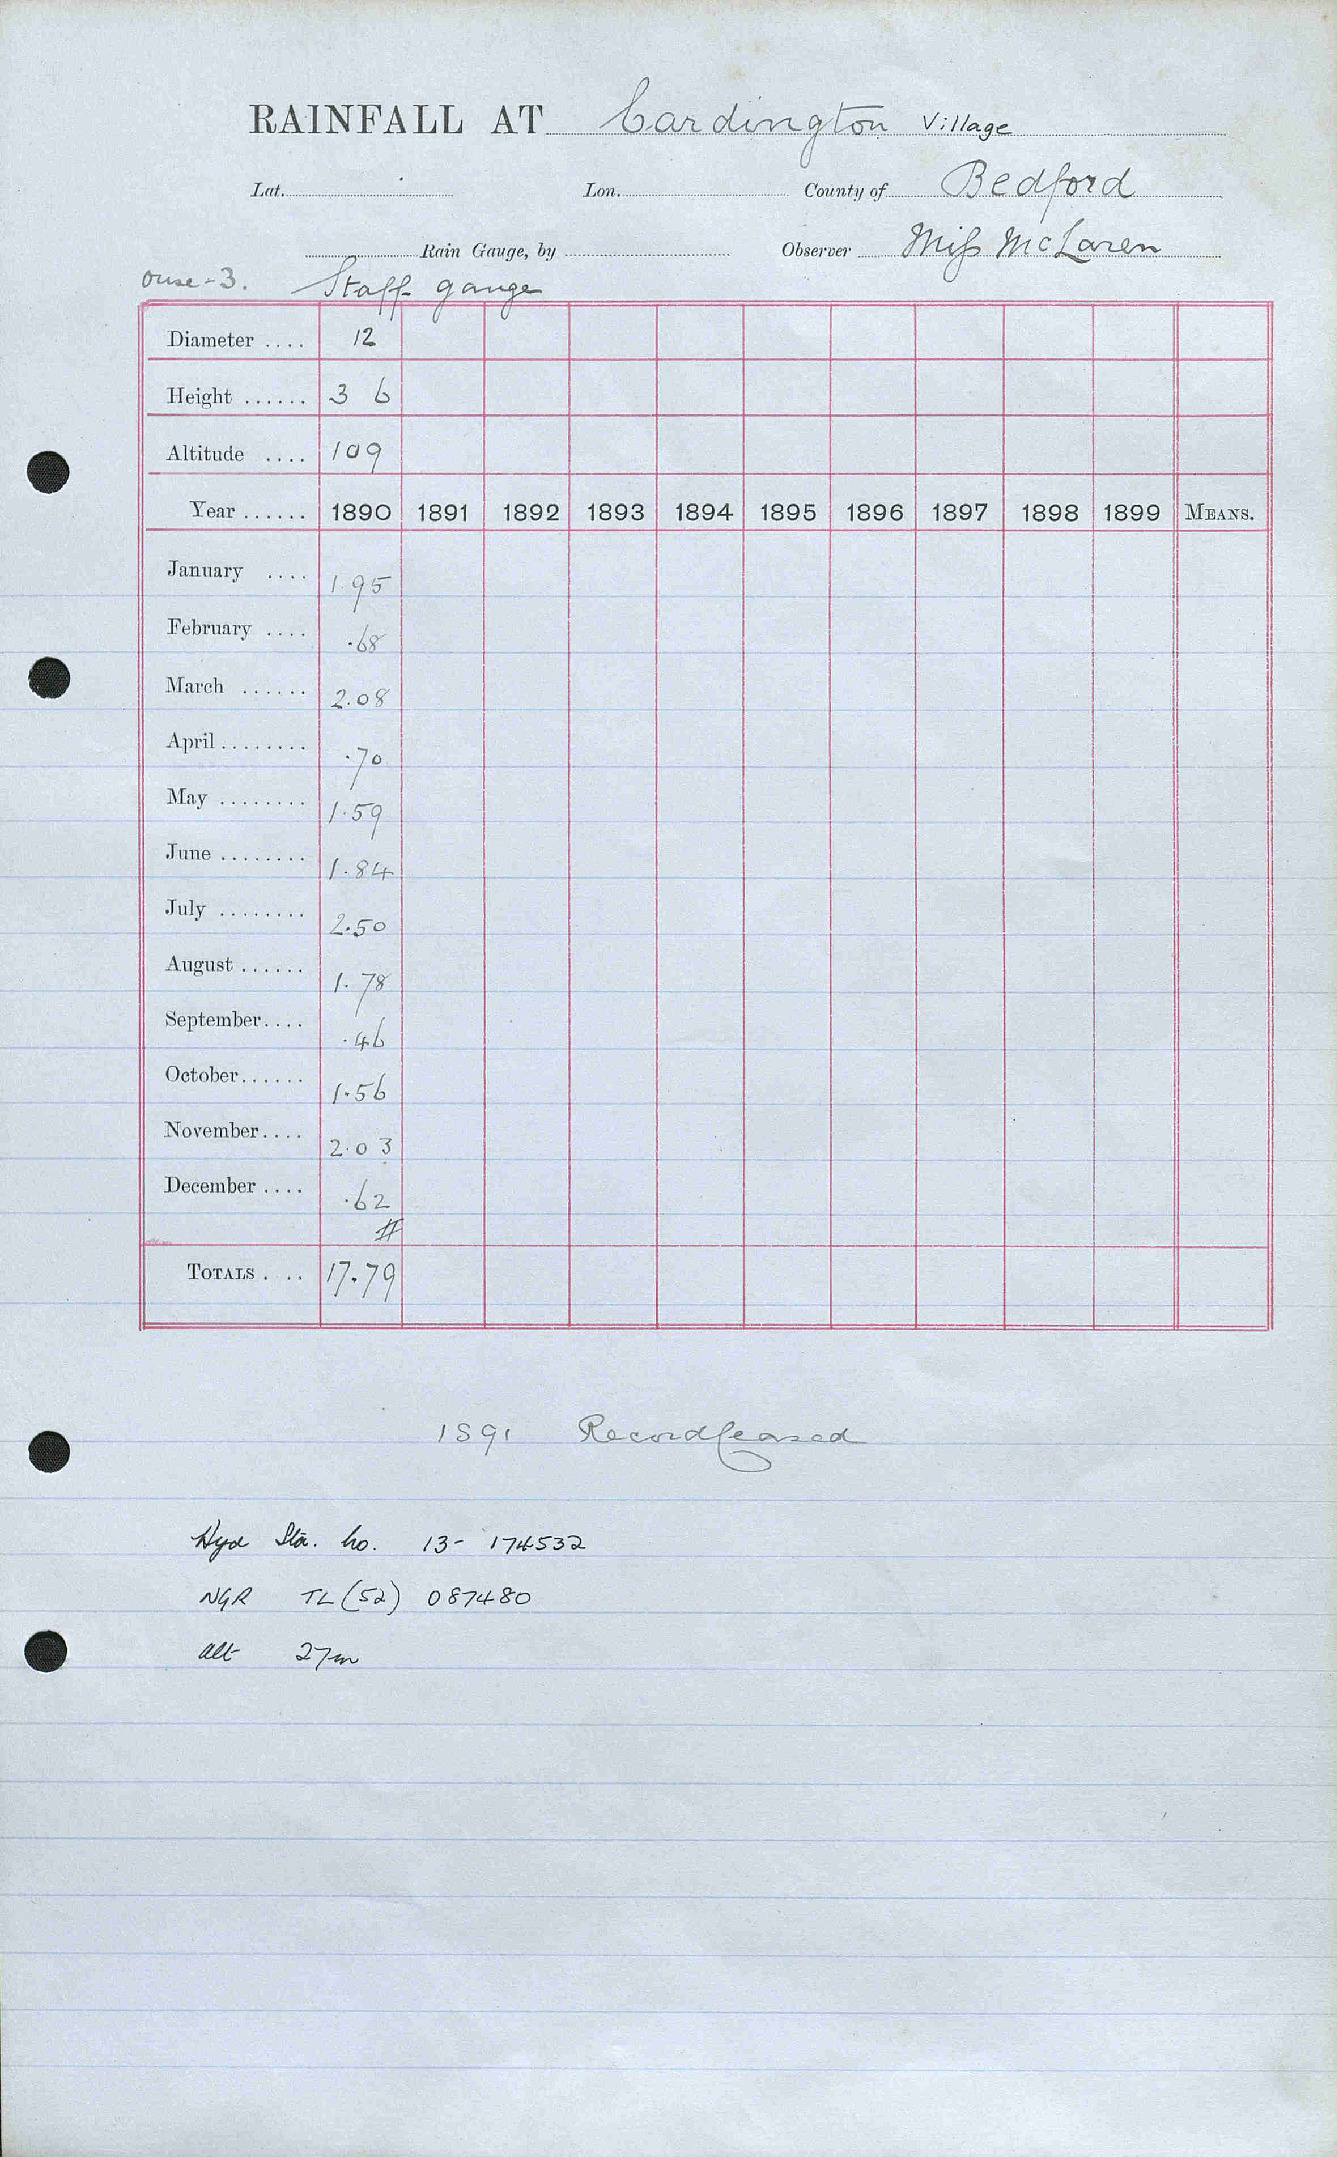 RAINFALL AT Cardington Village
Lat. Lon. County of Bedford
Rain Gauge, by Observer Miss McLaren
Ouse-3. Staff gauge
Diameter .... 12
Height ...... 3 6
Altitude .... 109
Year ...... 1890 1891 1892 1893 1894 1895 1896 1897 1898 1899 MEANS.
January .... 1.95
February .... .68
March ...... 2.08
April ........ .70
May ........ 1.59
June ........ 1.84
July ........ 2.50
August ...... 1.78
September.... .46
October...... 1.56
November.... 2.03
December .... .62
#
TOTALS . .. 17.79
1891 Record ceased
Hyd Sta. no. 13- 174532
NGR TL (52) 087480
alt 27m